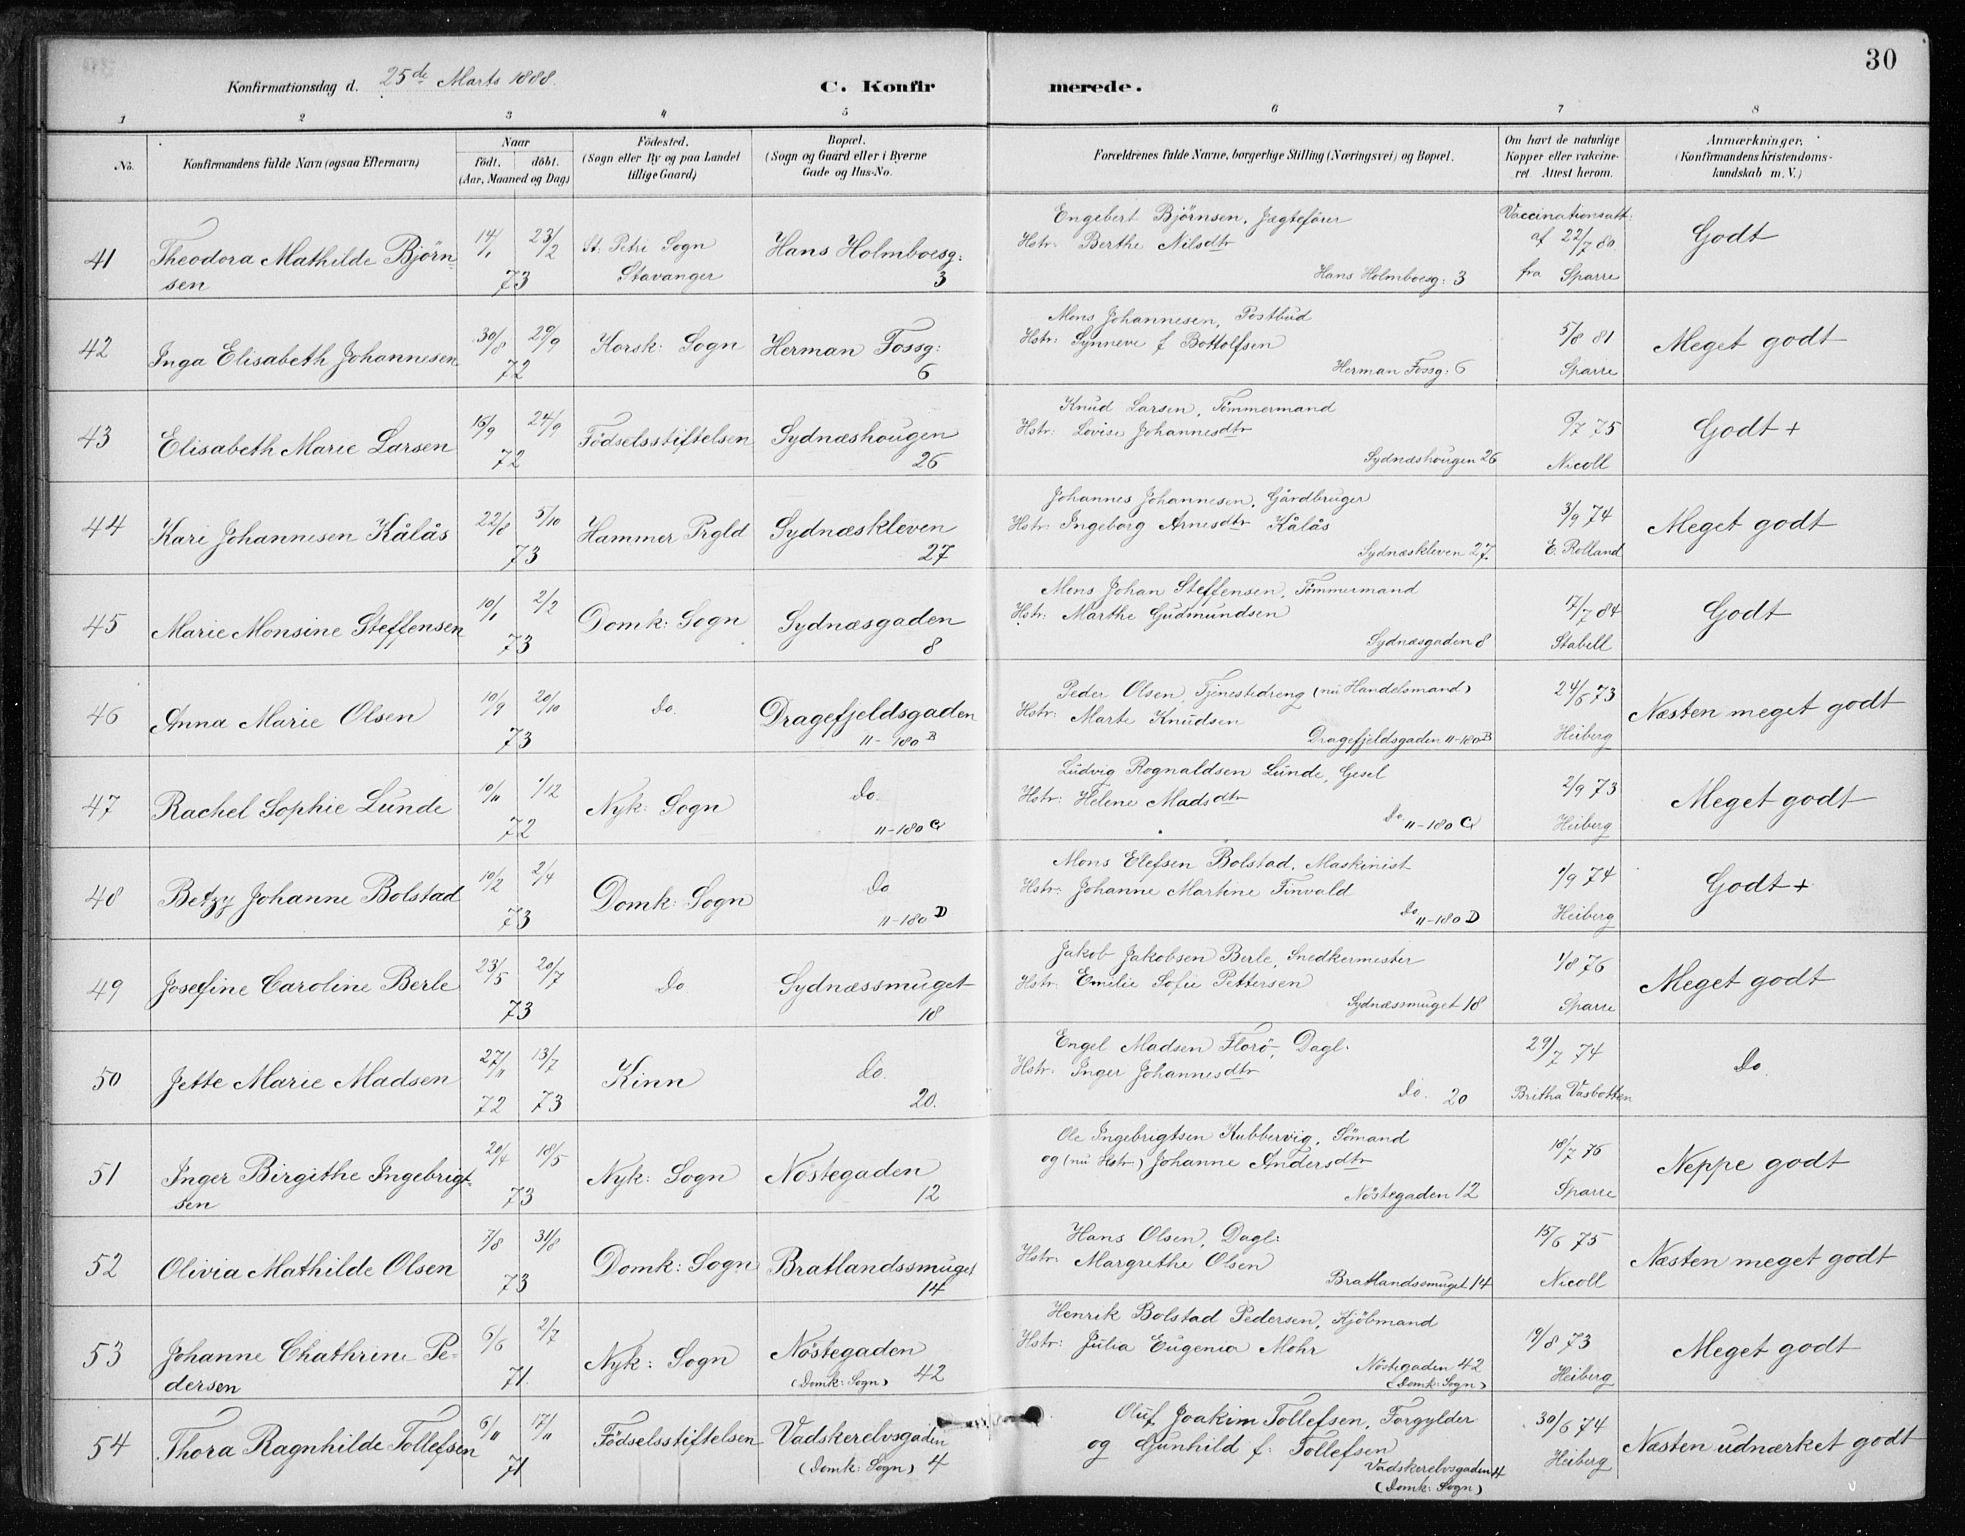 30
Konfirmationsdag d. 25de Marts 1888.
C. Konfirmerede.
1 2 3 4 5 6 7 8
No. Konfirmandens fulde Navn (ogsaa Efternavn) Naar födt. döbt. (Aar, Maaned og Dag) Födested. (Sogn eller By og paa Landet tillige Gaard) Bopæl. (Sogn og Gaard eller i Byerne Gade og Hus-No. Forældrenes fulde Navne, borgerlige Stilling (Næringsvei) og Bopæl. Om havt de naturlige Kopper eller vakcineret. Attest herom. Anmærkninger. (Konfirmandens Kristendomskundskab m. V.)
41 Theodora Mathilde Björnsen 14/1 23/2 73 St. Petri Sogn Stavanger Hans Holmboesg: 3 Engebert Björnsen, Jægtefører Hstr: Berthe Nilsdtr Hans Holmboesg: 3 Vaccinationsatt: af 22/7 80 fra Sparre Godt
42 Inga Elisabeth Johannesen 30/8 29/9 72 Korsk: Sogn Herman Fossg: 6 Mons Johannesen, Postbud Hstr: Synneve f Bottolfsen Herman Fossg: 6 5/8 81 Sparre Meget godt
43 Elisabeth Marie Larsen 15/9 24/9 72 Födselsstiftelsen Sydnæshougen 26 Knud Larsen, Tömmermand Hstr: Lovise Johannesdtr Sydnæshougen 26 /7 75 Nicoll Godt +
44 Kari Johannesen Kålås 22/8 5/10 73 Hammer Prgld Sydnæskleven 27 Johannes Johannesen, Gårdbruger Hstr: Ingeborg Arnesdtr Kålås Sydnæskleven 27. 3/9 74 E. Rolland Meget godt
45 Marie Monsine Steffensen 10/1 2/2 73 Domk: Sogn Sydnæsgaden 8 Mons Johan Steffensen, Tömmermand Hstr: Marthe Gudmundsen Sydnæsgaden 8 17/7 84 Stabell Godt
46 Anna Marie Olsen 10/9 20/10 73 Do. Dragefjeldsgaden 11-180 B Peder Olsen, Tjenestedreng (nu Handelsmand) Hstr: Marte Knudsen Dragefjeldsgaden 11-180B 24/6 73 Heiberg Næsten meget godt
47 Rachel Sophie Lunde 10/11 1/12 72 Nyk: Sogn Do. 11-180 C Ludvig Rognaldsen Lunde, Gesel Hstr: Helene Madsdtr Do 11-180 C 2/9 73 Heiberg Meget godt
48 Betzy Johanne Bolstad 10/2 2/4 73 Domk: Sogn Do 11-180 D Mons Elefsen Bolstad, Maskinist Hstr: Johanne Martine Finvald Do 11-180 D 1/9 74 Heiberg Godt +
49 Josefine Caroline Berle 23/5 20/7 73 Do Sydnæssmuget 18 Jakob Jakobsen Berle, Snedkermester Hstr: Emilie Sofie Pettersen Sydnæssmuget 18 1/8 76 Sparre Meget godt
50 Jette Marie Madsen 27/11 72 13/7 73 Kinn Do. 20. Engel Madsen Florö, Dagl: Hstr: Inger Johannesdtr Do. 20 29/7 74 Britha Vasbotten Do.
51 Inger Birgithe Ingebrigtsen 20/4 18/5 73 Nyk: Sogn Nöstegaden 12 Ole Ingebrigtsen Kubbervig, Sömand og (nu Hstr) Johanne Andersdtr Nöstegaden 12 18/7 76 Sparre Neppe godt
52 Olivia Mathilde Olsen 7/8 31/8 73 Domk: Sogn Bratlandssmuget 14 Hans Olsen, Dagl: Hstr: Margrethe Olsen Bratlandssmuget 14 15/6 75 Nicoll Næsten meget godt
53 Johanne Chathrine Pedersen 6/6 2/7 71. Nyk: Sogn Nöstegaden 42 (Domk: Sogn) Henrik Bolstad Pedersen, Kjöbmand Hstr: Julia Eugenia Mohr Nöstegaden 42 (Domk: Sogn) /8 73 Heiberg Meget godt
54 Thora Ragnhilde Tollefsen 6/11 17/11 71 Födselsstiftelsen Vadskerelvsgaden 4 (Domk: Sogn) Oluf Joakim Tollefsen, Forgylder og Gunhild f: Tollefsen Vadskerelvsgaden 4 (Domk: Sogn) 30/6 74 Heiberg Næsten udnærket godt